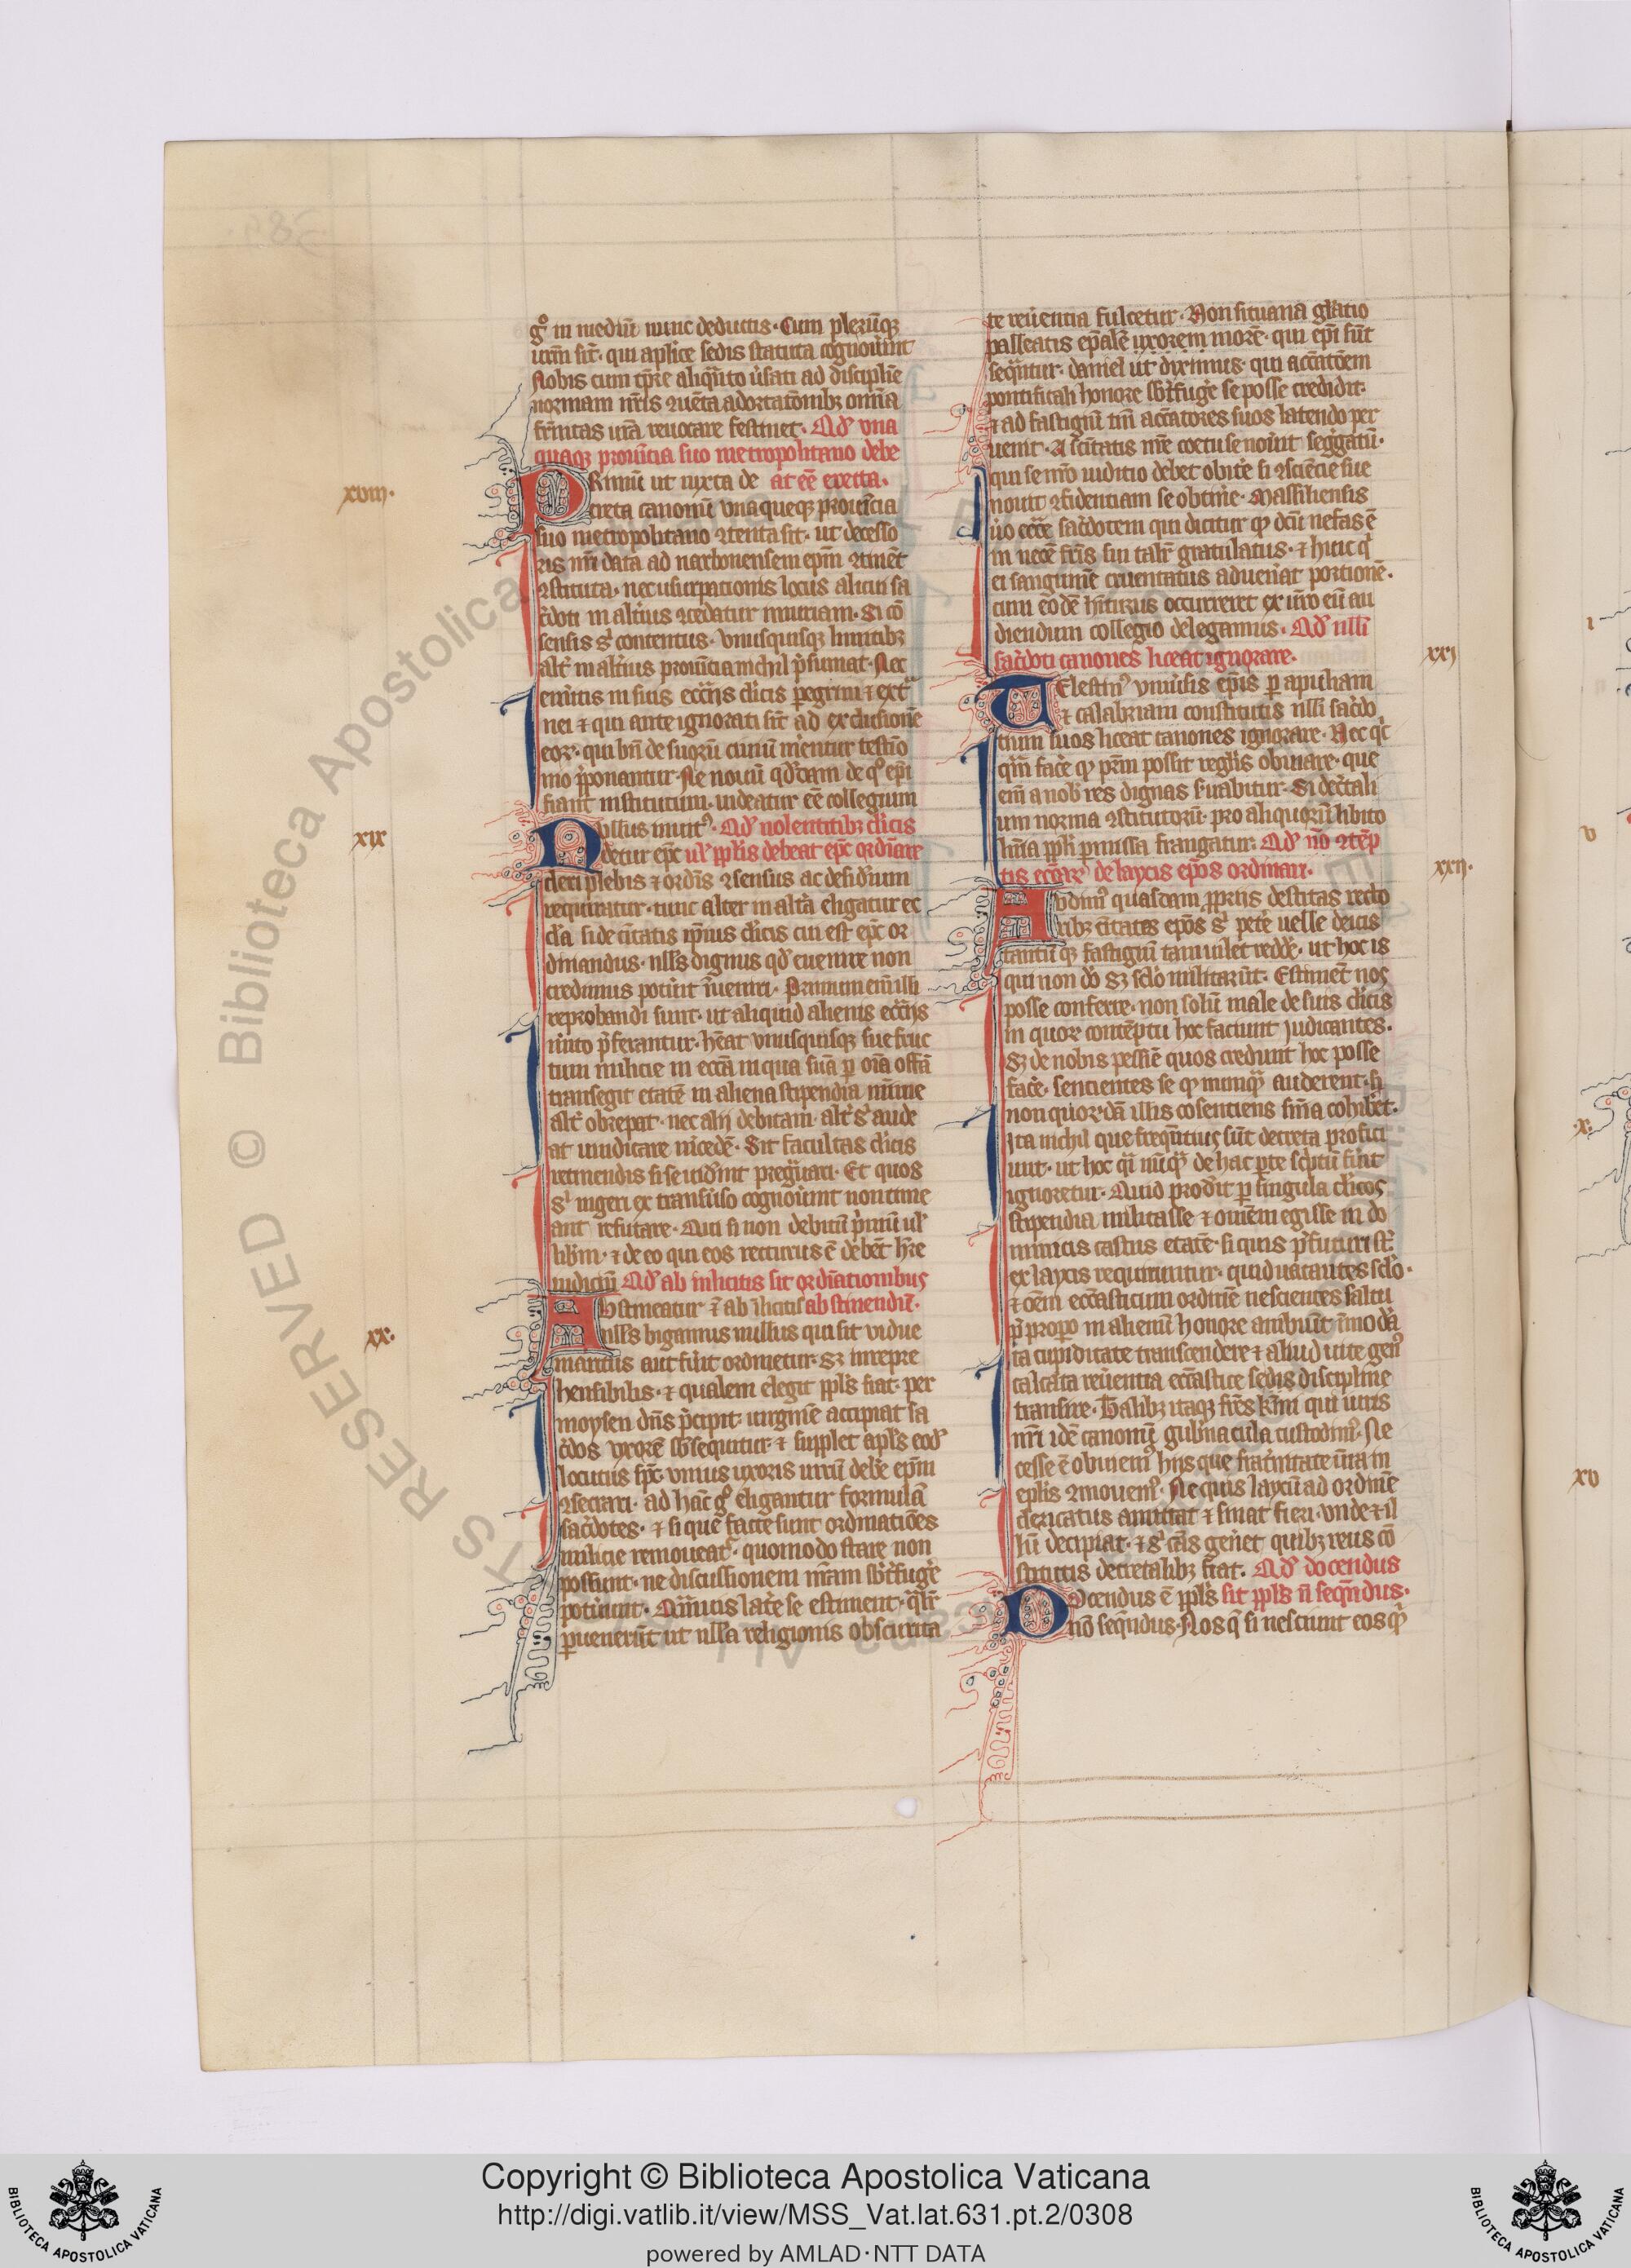 gͦ in mediū nunc deductis. Cum plerūqꝫ
ur̄m sit. qui aplice sedis statuta cognouer̄nt
Nobis cum tp̄re aliqn̄to uersati ad discipline
normam nr̄is ꝯuēta adortatōnibꝫ omnia
fr̄nitas ur̄a reuocare festinet. Qd̓ vna
quaqꝫ prouītia suo metropolitano debe
Rimū ut iuxta de at eē ꝯtēta.
xviii.
creta canonū vnaqueqꝫ prouīcia
suo metropolitano ꝯtenta sit. ut decesso
ris nr̄i data ad narbonensem ep̄m ꝯtinet
ꝯstituta. nec usurpationis locus alicui sa
c̓doti in alt̓ius ꝯcedatur iniuriam. Si cō
sensis s̓ contentus. vnusquisqꝫ limitibꝫ
alt̓ in alt̓ius prouīcia nichil p̓sumat. Nec
emitis in suis ecc̄iis cl̓icis pegrini ⁊ ext̓
nei ⁊ qui ante ignorati sīt ad exclusionē
eoꝝ. qui bn̄ de suoꝝ ciuiū m̓entur testīo
nio p̓ponantur. Ne nouū qd̓dam de qͦ ep̄i
fiant institutum. uideatur eē collegium
Nullus inuitꝰ. Qd̓ nolentitibꝫ cl̓icis
xix
detur ep̄c ul̓ ppl̓is debeat ep̄c ordīare
cleri plebis ⁊ ordīs ꝯsensus ac desid̓ium
requiratur. tunc alter in alt̓a eligatur ec
cl̓ia si de ciuitatis ip̄ius cl̓icis cui est ep̄c or
dinandus. nll̓s dignus qd̓ euenire non
credimus potu̓it īueniri. Primum enī illi
reprobandi sunt. ut aliquid alienis ecc̄iis
m̓ito p̓ferantur. hēat vnusquisqꝫ sue fruc
tum milicie in ecc̄a in qua suā p oīa offīa
transegit etatē in aliena stipendia mīme
alt̓ obrepat. nec alij debitam. alt̓ s̓ aude
at uindicare m̓cedē. Sit facultas cl̓icis
retinendis si se uid̓int pregͣuari. Et quos
s̓ ingeri ex transūso cognou̓int non time
ant refutare. Qui si non debitū p̓miū ul̓
lib̓m. ⁊ de eo qui eos recturus ē debēt hr̄e
iudiciū Qd̓ ab inlicitis sit ordīationibus
Abstineatur ē ab īlicitis abstinendū.
nll̓s bigamus nullus qui sit vidue
xx.
maritus aut fu̓it ordinetur. sꝫ inrepre
hensibilis. ⁊ qualem elegit ppl̓s fiat. per
moysen dn̄s p̓cipit. uirginē accipiat sa
c̓dos vxorē sb̓sequitur ⁊ supplet apl̓s eod̓
locutus sp̄c vnius uxoris uirū deb̓e ep̄m
ꝯsecrari. ad hāc gͦ eligantur formulā
sac̓dotes. ⁊ si que facte sunt ordinatiōes
inlicite remoueat̓. quomodo stare non
possunt. ne discussionem nr̄am sb̓t̓fuge̓
potu̓int.
puenerūt ut ulla religionis obscurita
te reu̓entia fulcetur. Non situana glatio
palleatis ep̄alē uxorem morē. qui ep̄i sūt
seqͣntur. daniel ut diximus. qui accatōem
pontificali honore sb̓t̓fuge̓ se posse credidit.
⁊ ad fastigiū tn̄ accatores suos latendo per
uenit. A sc̄itatis nr̄e coetu se nou̓it seg̓gatū.
qui se nr̄o iuditio debet obice̓ si ꝯsciēcie sue
nouit ꝯfidentiam se obtin̓e. Massiliensis
u̓o ecc̄e sac̓dotem qui dicitur qꝫ dcū nefas ē
in nece fr̄is sui talr̄ gratulatus. ⁊ huic q̓
ei sanguinē cruentatus adueniat portionē.
cum eodē hītirus occurreret ex ur̄o eū au
diendum collegio delegamus. Qd̓ ulli
sac̓doti canones liceat ignorare.
xxi
Celestinꝰ vniu̓sis ep̄is p apuliam
⁊ calabriam constitutis ulli sac̓do
tum suos liceat canones ignorare. Nec qͥc
qͣm face̓ qꝫ prīm possit regl̓is obuiare. que
em̄ a nob̓ res dignas s̓uabitur. Si dec̓tali
um norma ꝯstitutoꝝ. pro aliquoꝝ libito
licētia ppl̓i pmissa frangatur. Qd̓ nō ꝯtēp
tis ecc̄ar̓ de laycis ep̄os ordinari.
xxii.
Audiuiꝰ quasdam ppriis destitutas recto
ribꝫ ciuitates ep̄os s̓ pete̓ uelle de laicis
tantū qꝫ fastigiū tam uilet redd̓e. ut hoc is
qui non dō sꝫ sclō militarūt. Estiment nos
posse conferre. non solū male de suis cl̓icis
in quoꝝ contēptu hoc faciunt judicantes.
sꝫ de nobis pessie quos credunt hoc posse
face̓. sentientes se qꝫ nunqͣ auderent. si
non quoꝝdā illis cosentiens sn̄ia cohib̓et.
Ita nichil que freqͣntius sūt decreta profici
unt. ut hoc qͣi nūqͣ de hac pte sc̓ptū fu̓it
ignoretur. Quid prod̓it p singula cl̓icos
stipendia militasse ⁊ omēm egisse in do
minicis castris etatē. si quis p̓futuri st̄.
ex laycis requiruntur. qui uacantes sclō.
⁊ oēm ecc̄asticum ordinē nescientes saltu
p̓propo in alienū honore ambiūt īmodā
ta cupiditate transcendere ⁊ aliud uite genꝰ
calcata reu̓entia ecc̄astice sedis discipline
transire. Talibꝫ itaqꝫ fr̄es kr̄mi qui iuris
nr̄i idē canonū gub̓nacula custodimꝰ. Ne
cesse ē obuiemꝰ hiis que frat̓nitatē ur̄am in
ep̄lis ꝯmouemꝰ. Ne quis laycū ad ordinē
clericatus amittat ⁊ sinat fieri. vnde ⁊ il
lū decipiat. ⁊ s̓ cās gen̓et quibꝫ reus cō
stitutis decretalibꝫ fiat. Qd̓ docendus
Docendus ē ppl̓s sit ppl̓s n̄ seqͣndus.
nō seqͣndus. Nos qꝫ si nesciunt eos qͥ
Copyright © Biblioteca Apostolica Vaticana
http://digi.vatlib.it/view/MSS_Vat.lat.631.pt.2/0308
powered by AMLAD·NTT DATA
BIBLIOTECA APOSTOLICA VATICANA
BIBLIOTECA APOSTOLICA VATICANA